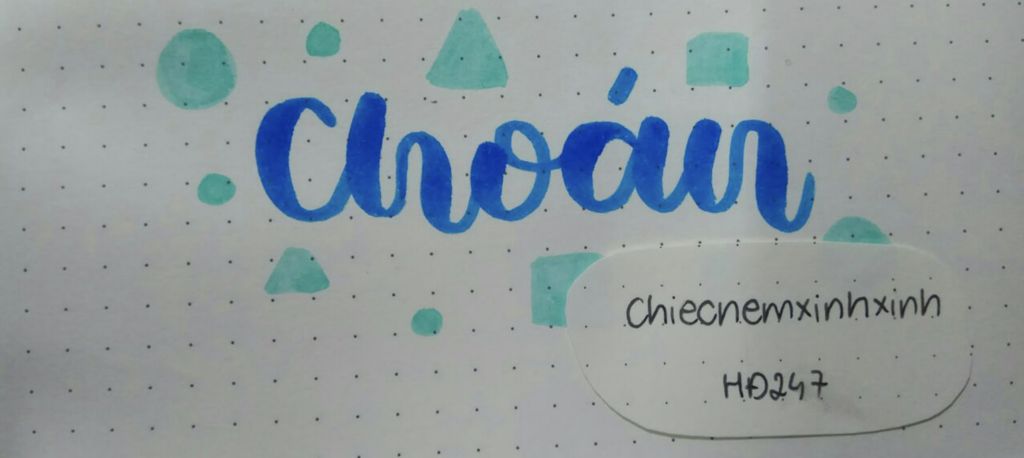 Choán
chiecnemxinhxinh
HĐ247